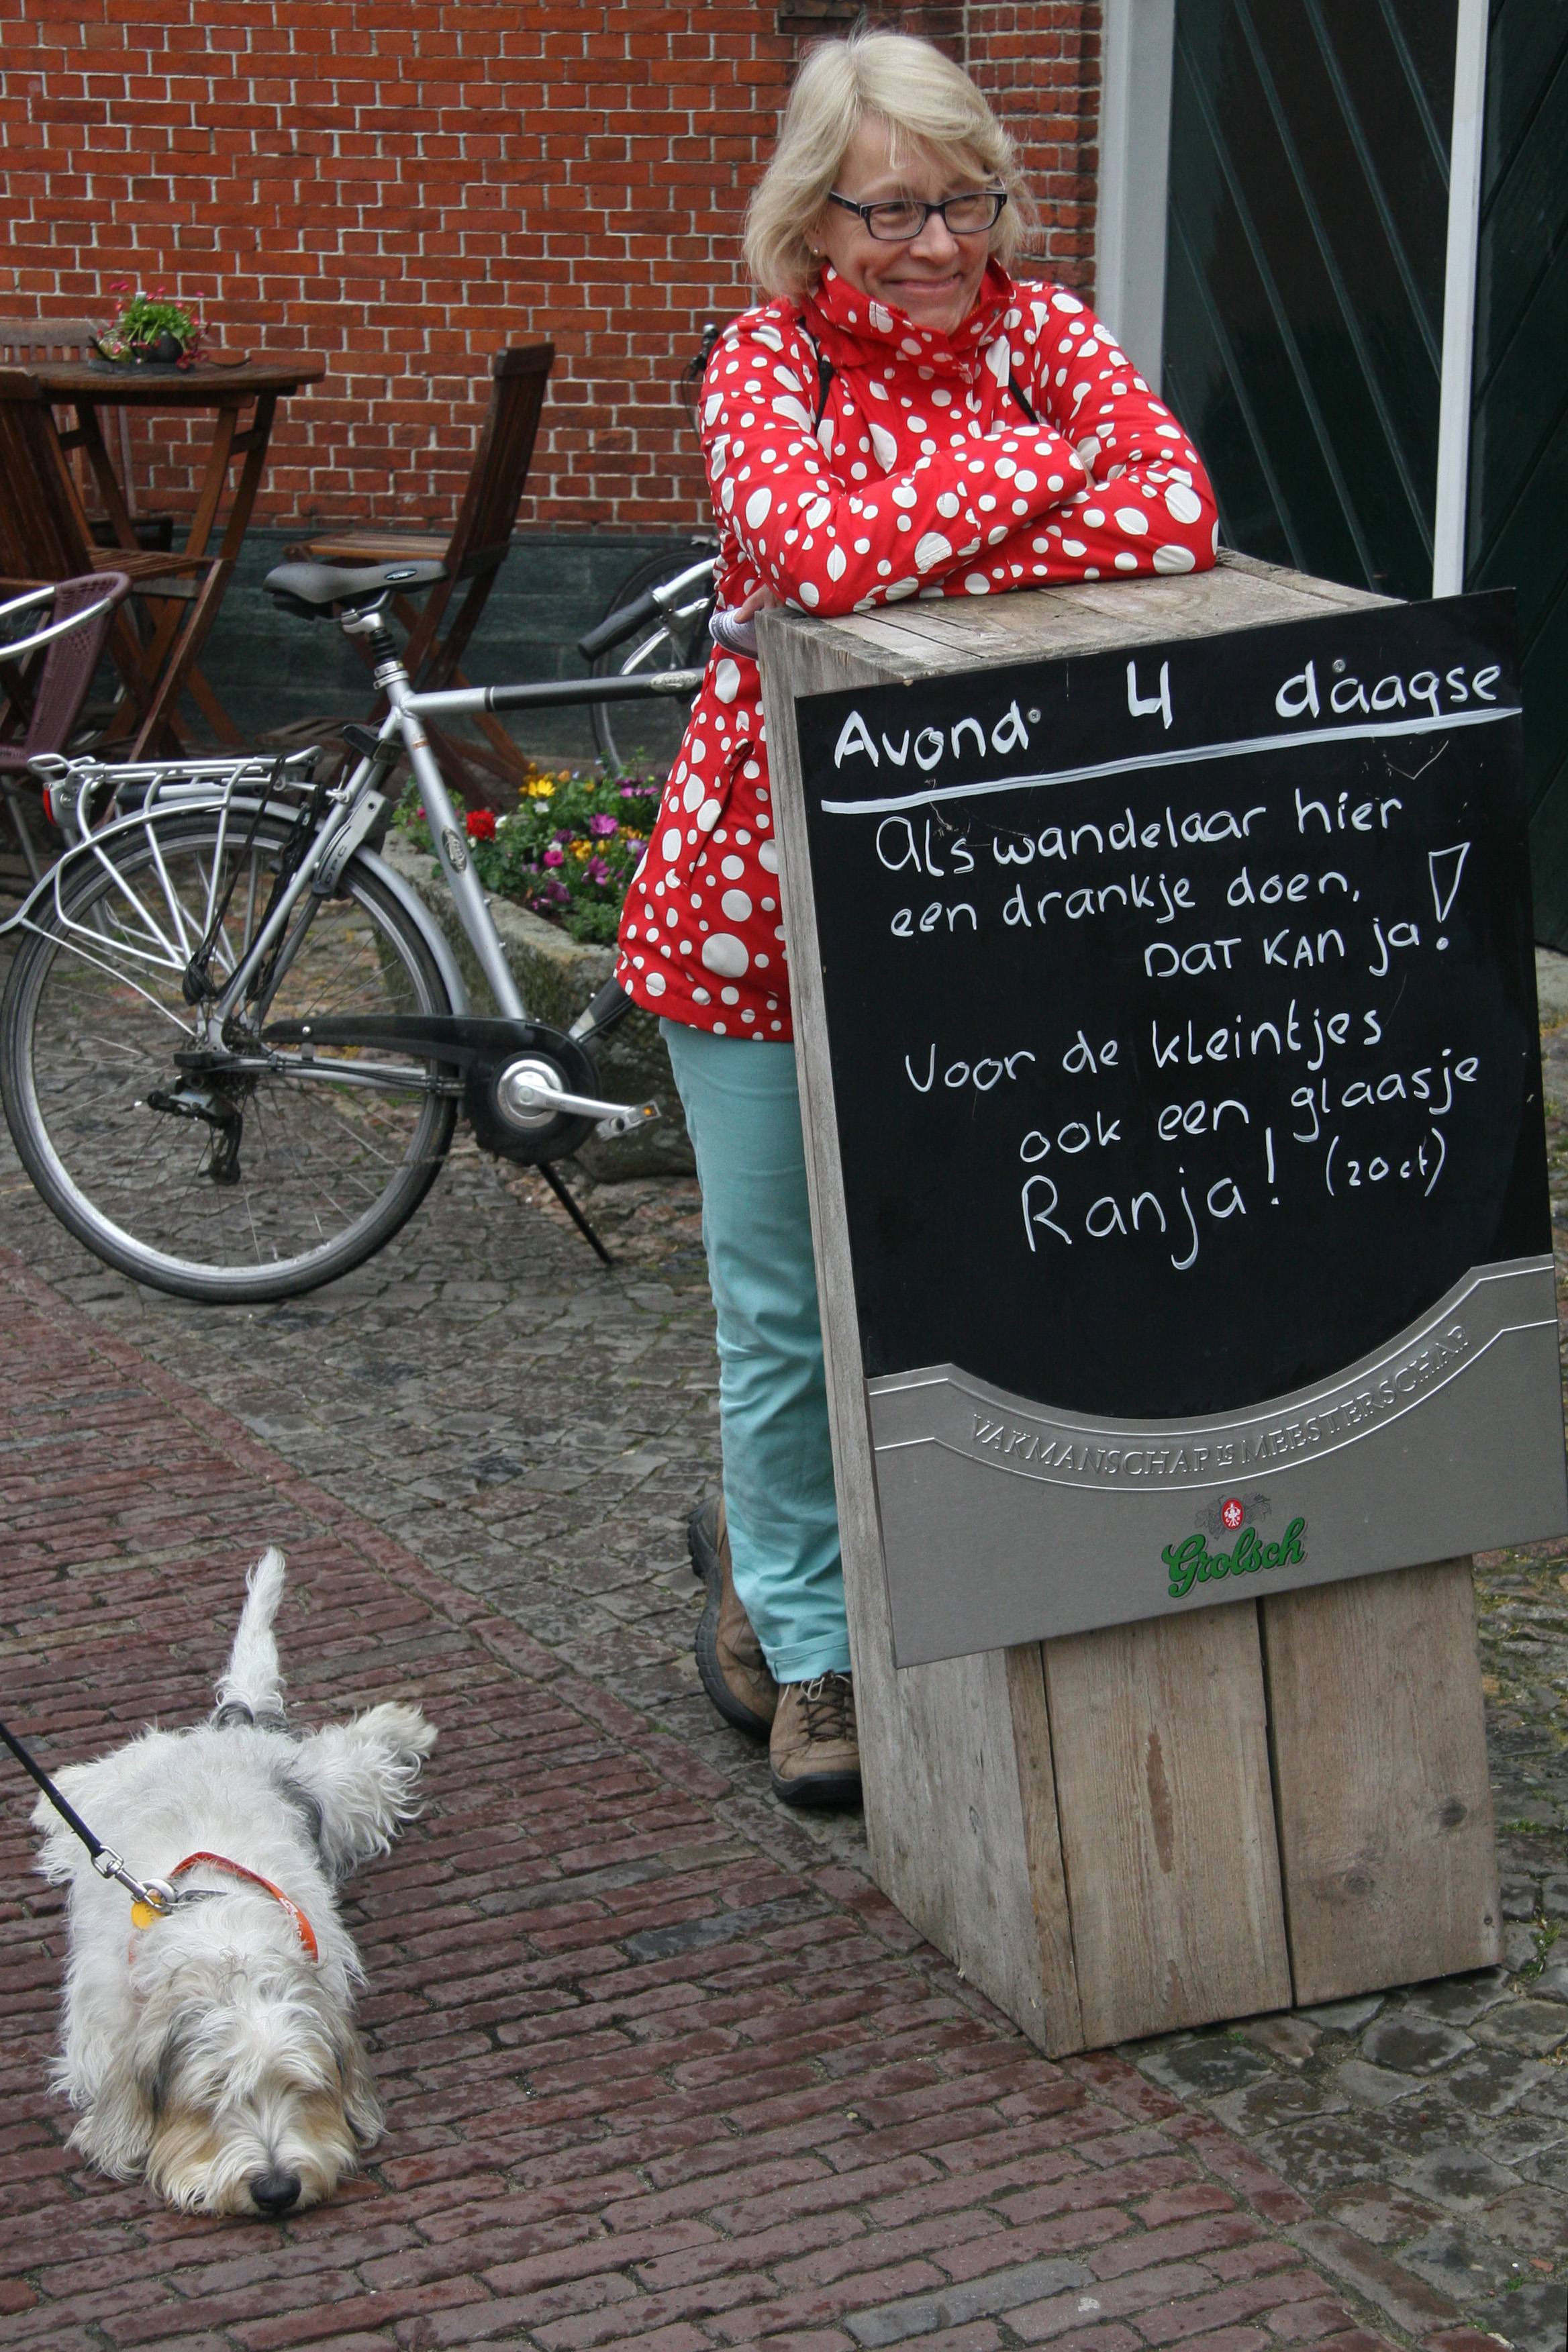 Avond 4 daagse
Als wandelaar hier
een drankje doen,
DAT KAN ja!
Voor de kleintjes
ook een glaasje
Ranja! (20 ct)
VAKMANSCHAP IS MEESTERSCHAP
Grolsch